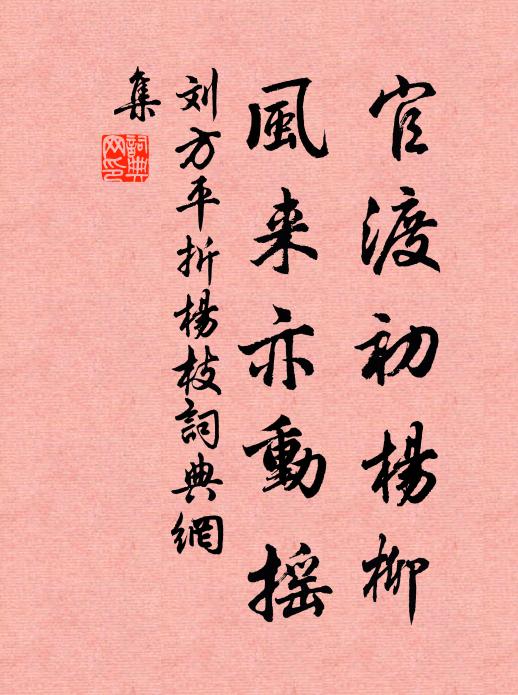 官渡初楊柳
風来亦動摇
刘方平折楊枝詞典網
集
詞典网印